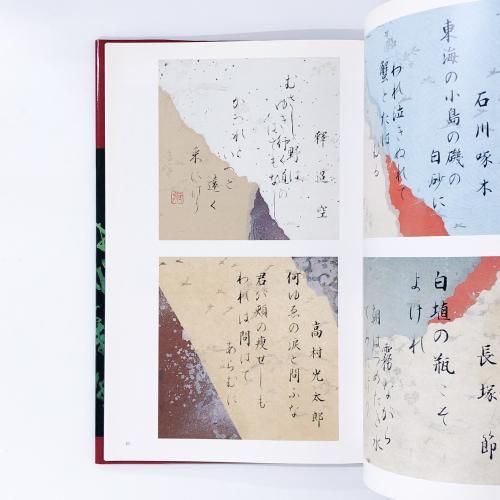 石川啄木
東海の小島の磯の
白砂に
われ泣きぬれて
蟹とたは
長塚節
白埴の瓶こそ
よけれ
霧ながら
朝はつめたき水
釋迢空
むさし野は
ゆき行く道の
はてもなし
かへれといへど
遠く
来にけり
高村光太郎
何ゆゑの涙と問ふな
君が頬の痩せしも
われは問はで
あらむに